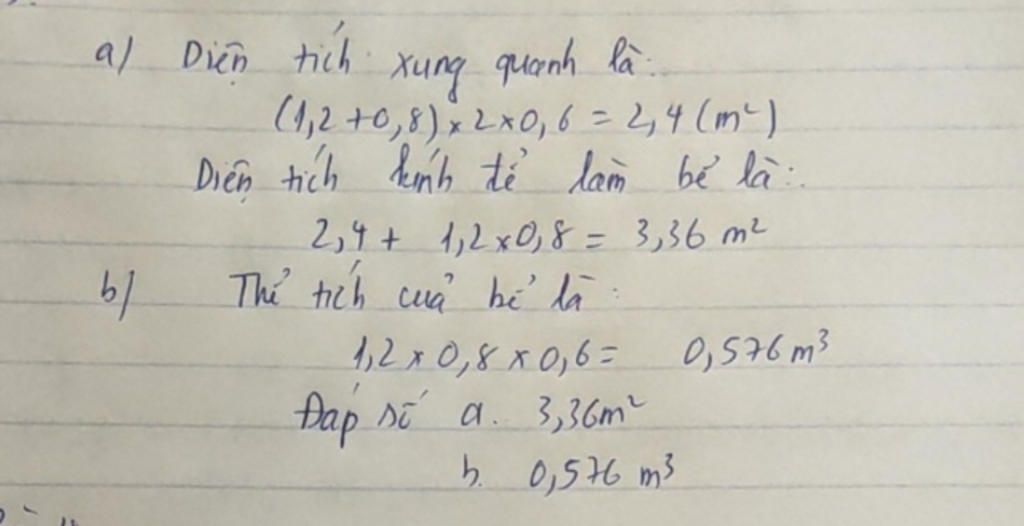 a) Diện tích xung quanh là:
(1,2+0,8)×2×0,6=2,4(m²)
Diện tích kính để làm bể là:
2,4+ 1,2×0,8= 3,36 m²
b) Thể tích của bể là:
1,2×0,8×0,6= 0,576m³
Đáp số a. 3,36m²
b. 0,576 m³